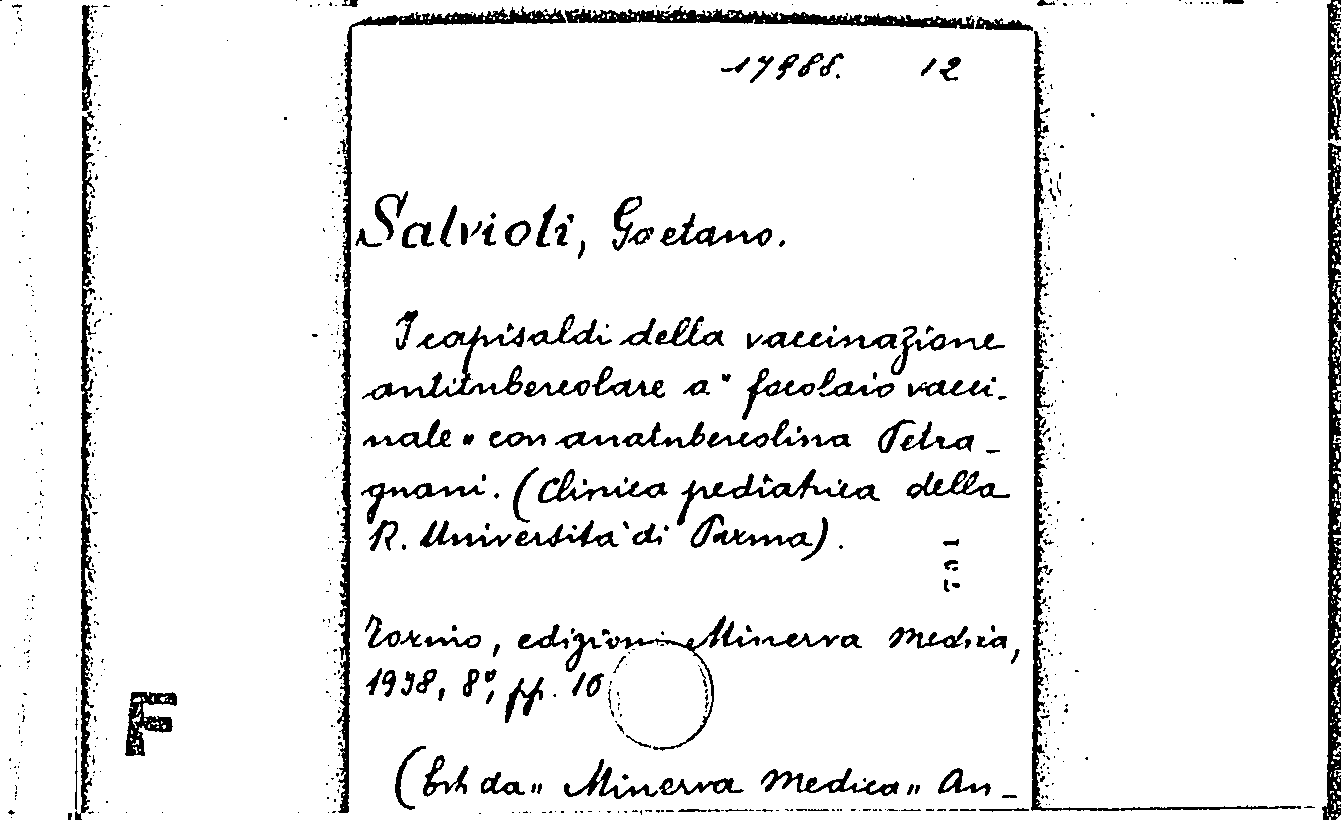 17988. 12
Salvioli, Gaetano.
I capisaldi della vaccinazione
antitubercolare a " focolaio vacci-
nale " con anatubercolina Petra-
gnani. (Clinica pediatrica della
R. Università di Parma).
Torino, edizioni Minerva Medica,
1938, 8°, pp. 16
F
(Estr. da " Minerva Medica " An-